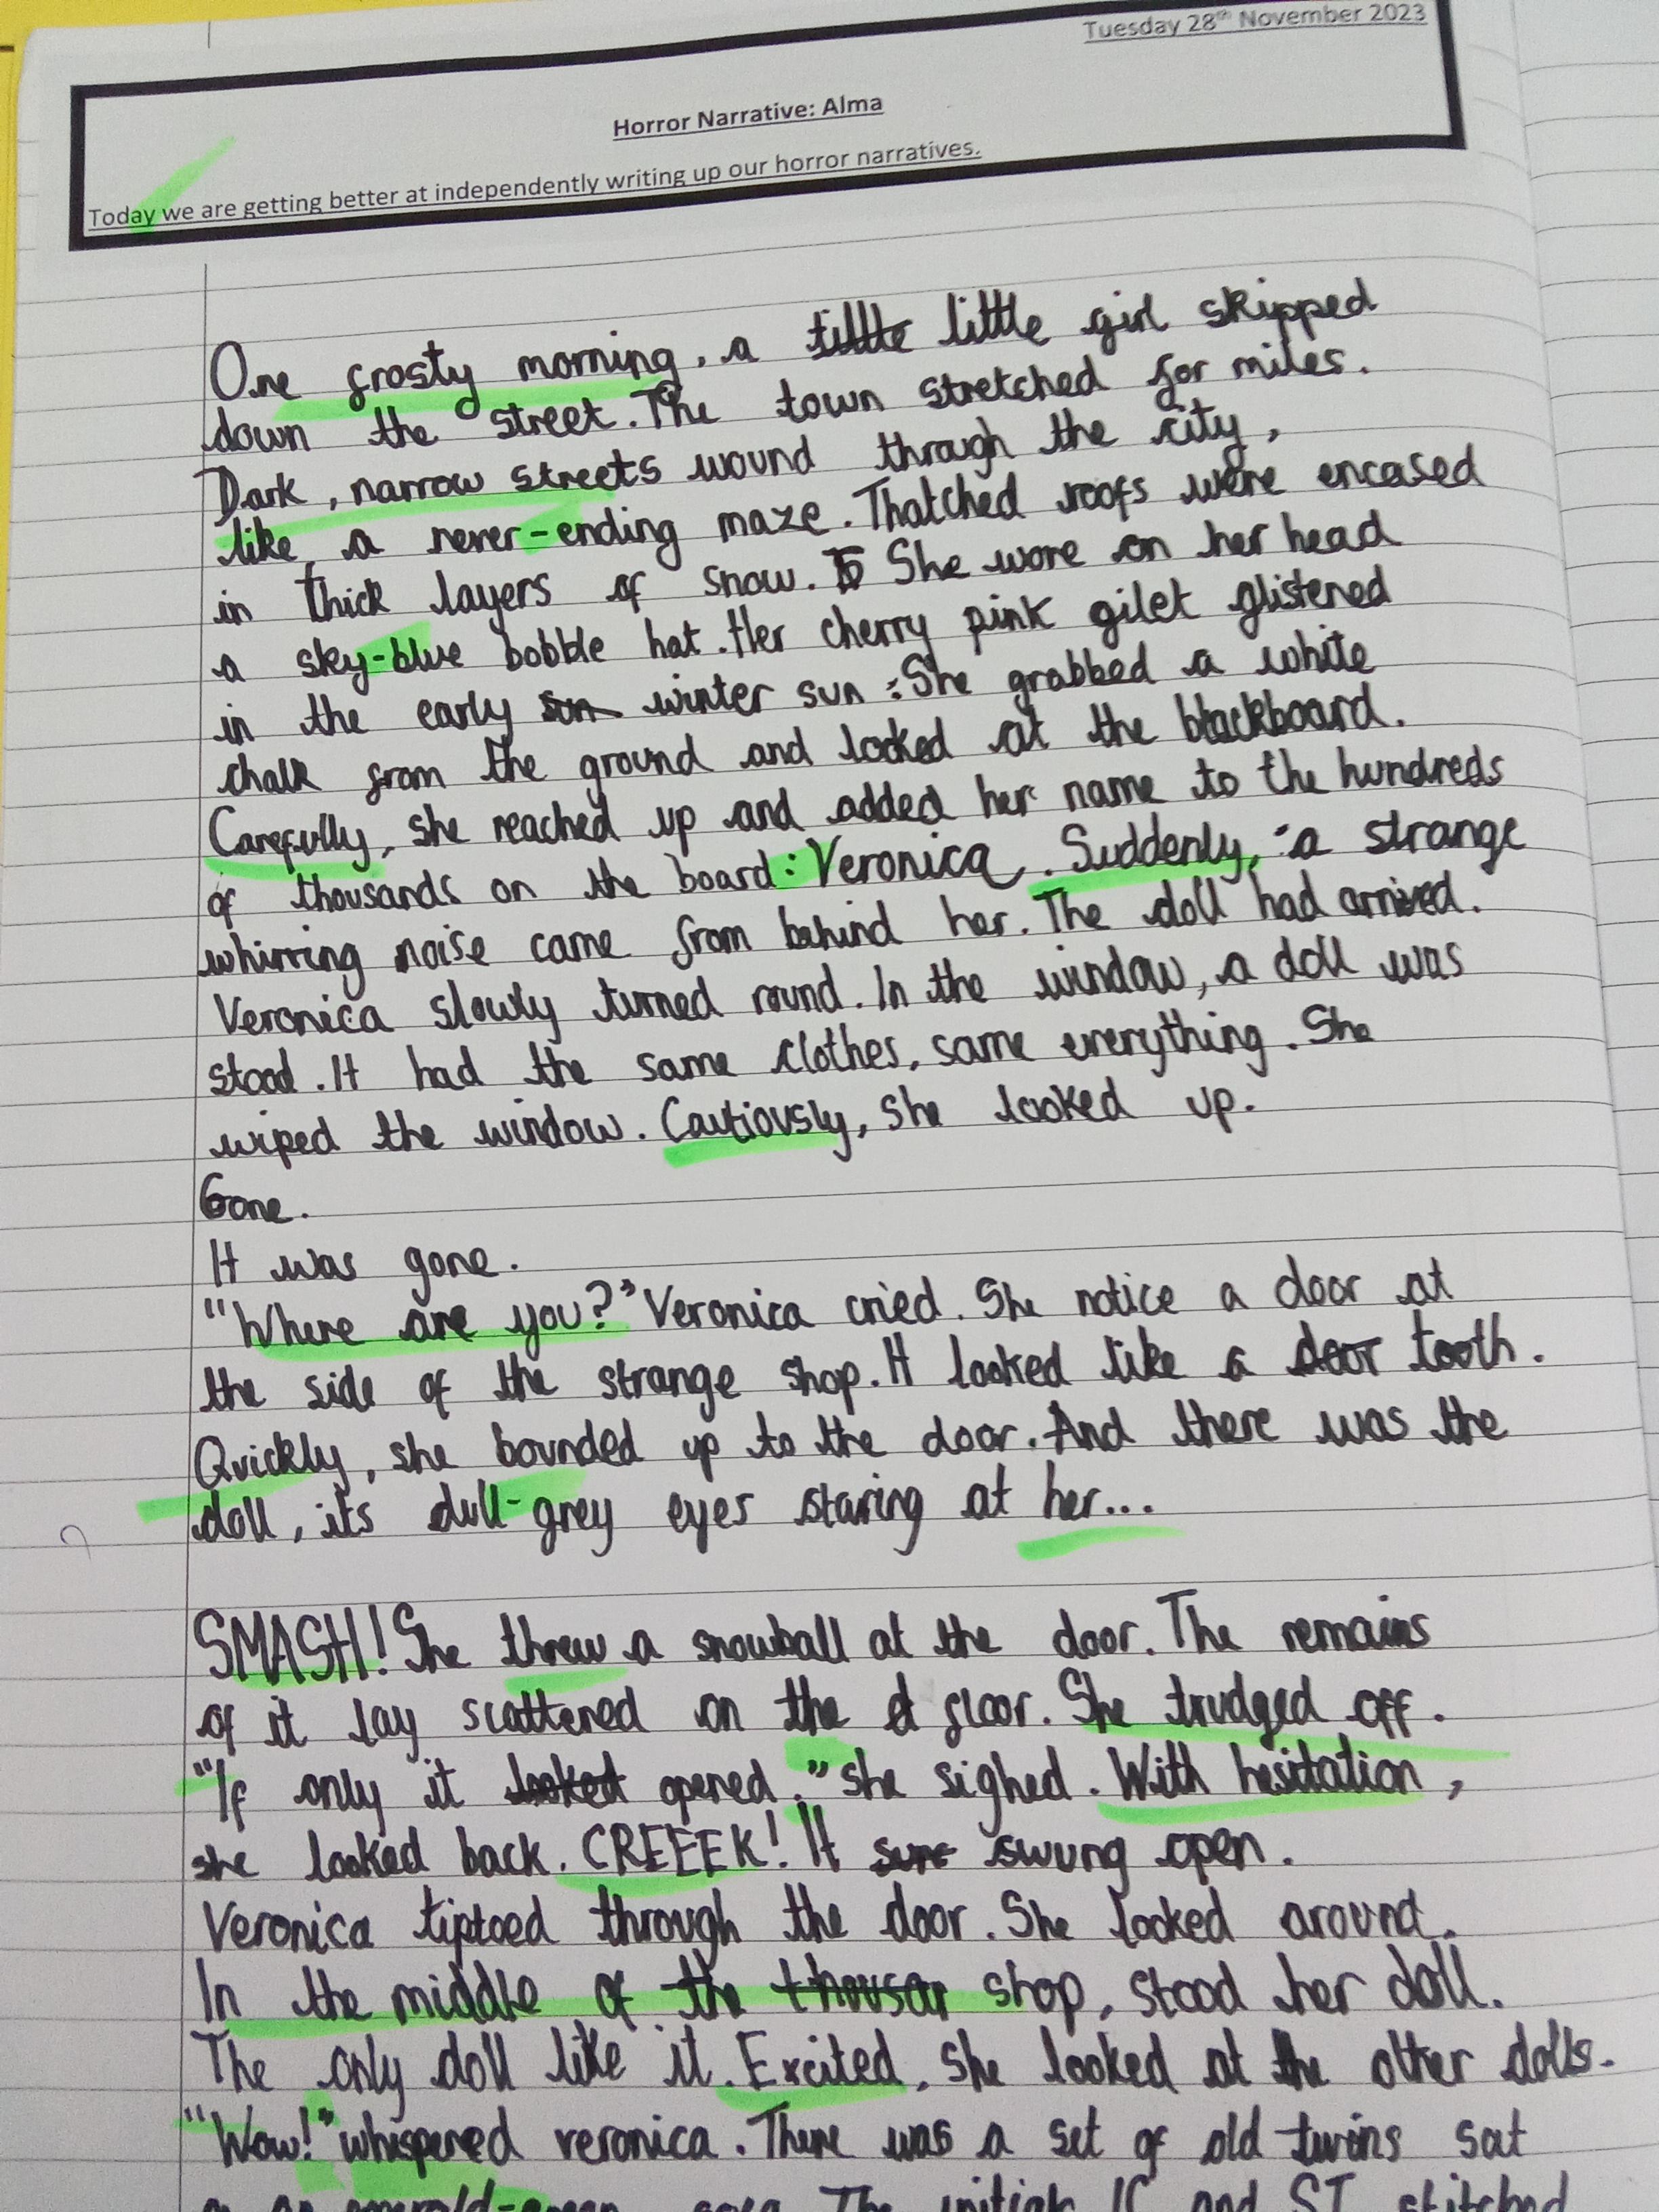 Tuesday 28th November 2023
Horror Narrative: Alma
Today we are getting better at independently writing up our horror narratives.
One frosty morning, a little girl skipped
down the street. The town stretched for miles.
Dark, narrow streets wound through the city,
like a never-ending maze. Thatched roofs were encased
in thick layers of snow. She wore on her head
a sky-blue bobble hat. Her cherry pink gilet glistened
in the early sun winter sun. She grabbed a white
chalk from the ground and looked at the blackboard.
Carefully, she reached up and added her name to the hundreds
of thousands on the board: Veronica. Suddenly, a strange
whirring noise came from behind her. The doll had arrived.
Veronica slowly turned round. In the window, a doll was
stood. It had the same clothes, same everything. She
wiped the window. Cautiously, she looked up.
Gone.
It was gone.
"Where are you?" Veronica cried. She notice a door at
the side of the strange shop. It looked like a door tooth.
Quickly, she bounded up to the door. And there was the
doll, its dull-grey eyes staring at her...
SMASH! She threw a snowball at the door. The remains
of it lay scattered on the floor. She trudged off.
"If only it looked opened." she sighed. With hesitation,
she looked back. CREEEK! It swung open.
Veronica tiptoed through the door. She looked around.
In the middle of the thousan shop, stood her doll.
The only doll like it. Excited, she looked at the other dolls.
"Wow!" whispered veronica. There was a set of old twins sat
emerald-green The initials and ST stitched